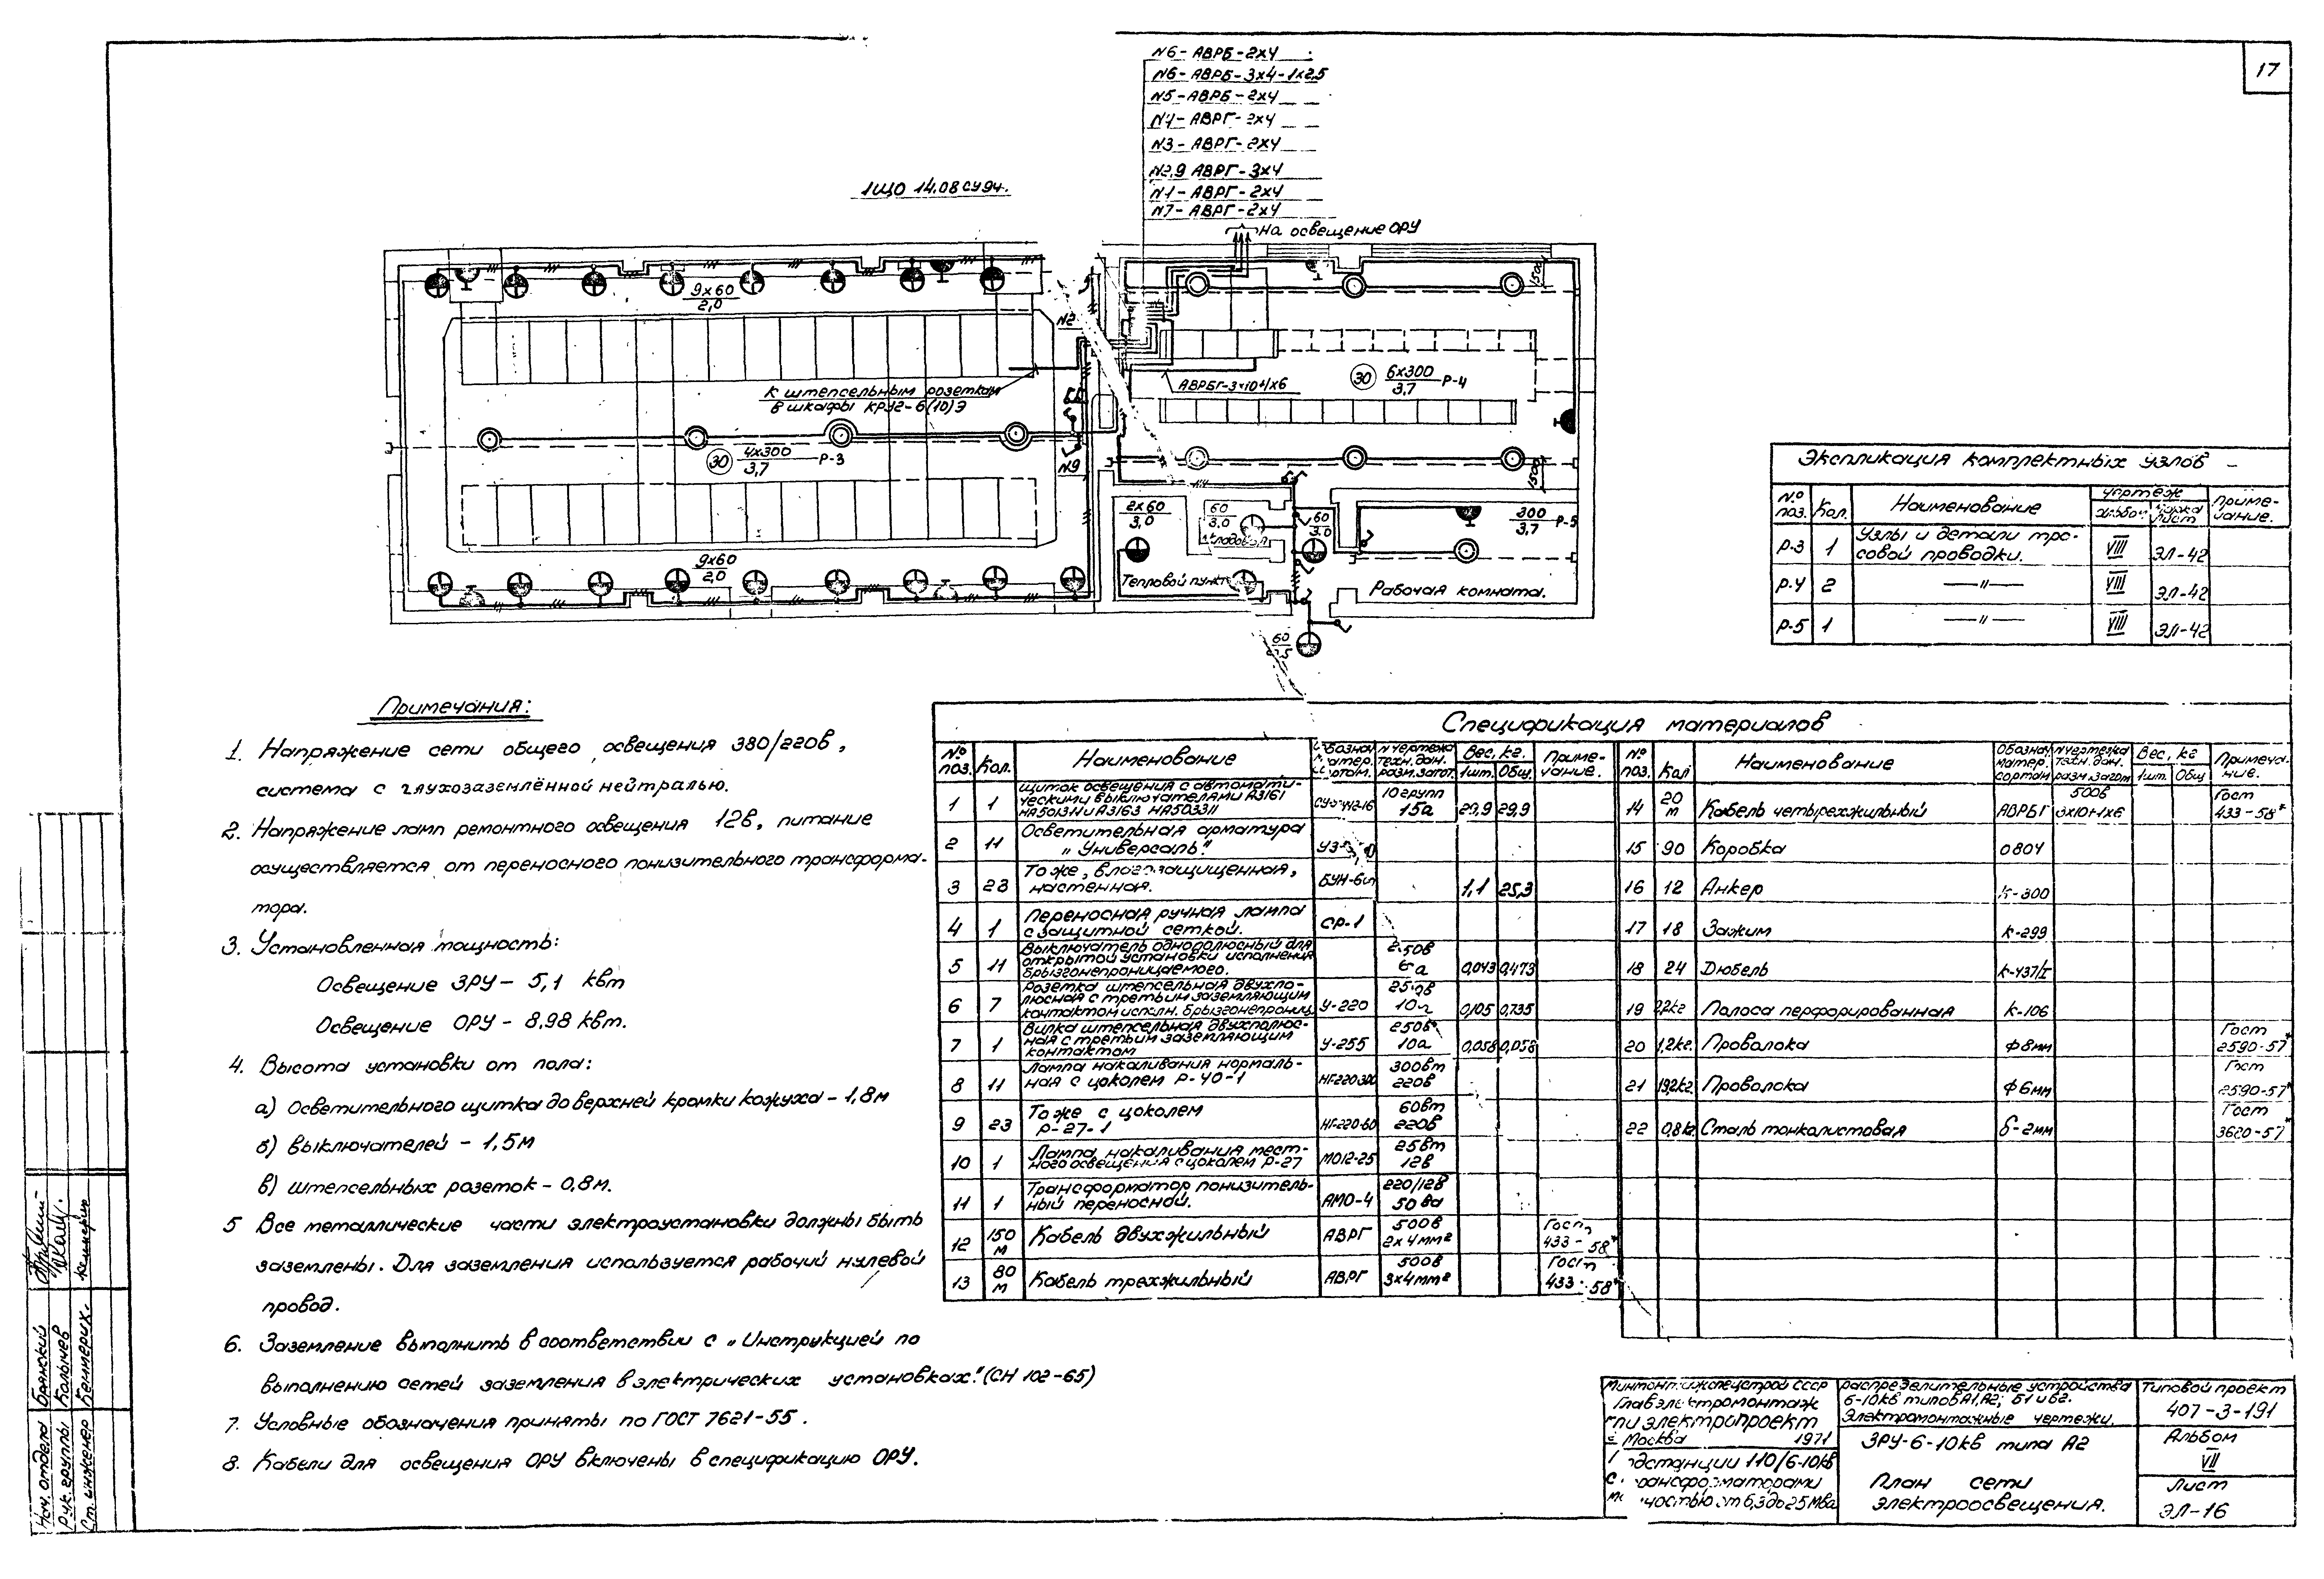 17
N6- АВРБ-2х4
N6- АВРБ-3х4-1х2,5
N5-АВРБ-2х4
N4- АВРГ-2х4
N3- АВРГ-2х4
N2,9 АВРГ-3х4
N1- АВРГ-2х4
N7- АВРГ-2х4
1ЩО 14.08 СУ94.
На освещение ОРУ
9х60
2,0
N2
1500
к штепсельным розеткам
в шкафы КРУ2-6(10)Э
АВРБГ-3х10+1х6
30 6х300 Р-4
3,7
30 4х300 Р-3
3,7
N9
1500
2х60
3,0
60
3,0
60
3.0
300 Р-5
3,7
9х60
2,0
Тепловой пункт
Рабочая комната.
60
Экспликация комплектных узлов
№ поз. Кол. Наименование чертеж альбом лист Примечание.
Р-3 1 Узлы и детали тросовой проводки. VIII ЭЛ-42
Р-4 2 —"— VIII ЭЛ-42
Р-5 1 —"— VIII ЭЛ-42
Примечания:
1. Напряжение сети общего освещения 380/220в,
система с глухозаземлённой нейтралью.
2. Напряжение ламп ремонтного освещения 12в, питание
осуществляется от переносного понизительного трансформа-
тора.
3. Установленная мощность:
Освещение ЗРУ- 5,1 квт
Освещение ОРУ- 8,98 квт.
4. Высота установки от пола:
а) Осветительного щитка до верхней кромки кожуха-1,8м
б) выключателей - 1,5м
в) штепсельных розеток-0,8м.
5 Все металлические части электроустановки должны быть
заземлены. Для заземления используется рабочий нулевой
провод.
6. Заземление выполнить в соответствии с „Инструкцией по
выполнению сетей заземления в электрических установках." (СН 102-65)
7. Условные обозначения приняты по ГОСТ 7621-55.
8. Кабели для освещения ОРУ включены в спецификацию ОРУ.
Спецификация материалов
№ поз. Кол. Наименование Обознач. матер. сортам. N чертежа техн. дан. разм. загот. Вес, кг. 1шт. Общ. Примечание.
1 1 Щиток освещения с автоматическими выключателями А3161 НА50134 и А3163 НА50331 10 групп 15а 29,9 29,9
2 11 Осветительная арматура „Универсаль"
3 23 То же, влагозащищенная, настенная. БУН-60 1,1 25,3
4 1 Переносная ручная лампа с защитной сеткой. СР-1
5 11 Выключатель однополюсный для открытой установки исполнения брызгонепроницаемого. 250в 6а 0,043 0,473
6 7 Розетка штепсельная двухполюсная с третьим заземляющим контактом исполн. брызгонепрониц. У-220 250в 10а 0,105 0,735
7 1 Вилка штепсельная двухполюсная с третьим заземляющим контактом У-255 250в 10а 0,058 0,058
8 11 Лампа накаливания нормальная с цоколем Р-40-1 НГ-220-300 300вт 220в
9 23 То же с цоколем Р-27-1 НГ-220-60 60вт 220в
10 1 Лампа накаливания местного освещения с цоколем Р-27 МО12-25 25вт 12в
11 1 Трансформатор понизительный переносной. АМО-4 220/12в 50ва
12 150 м Кабель двухжильный АВРГ 500в 2х4мм² Гост 433-58*
13 80 м Кабель трехжильный АВРГ 500в 3х4мм² Гост 433-58*
№ поз. Кол Наименование Обознач матер. сортам N чертежа техн. дан. разм. загот Вес, кг 1шт. Общ Примечание.
14 20 м Кабель четырехжильный АВРБГ 500в 3х10+1х6 Гост 433-58*
15 90 Коробка 0804
16 12 Анкер К-300
17 18 Зажим К-299
18 24 Дюбель К-437/I
19 2,2кг Полоса перфорированная К-106
20 1,2кг. Проволока Ф8мм Гост 2590-57*
21 19,2кг. Проволока Ф6мм Гост 2590-57*
22 0,8кг. Сталь тонколистовая δ-2мм Гост 3620-57*
Минмонтажспецстрой СССР
Главэлектромонтаж
ГПИ Электропроект
г Москва 1971
Подстанции 110/6-10кв
с трансформаторами
мощностью от 6,3 до 25 Мва
распределительные устройства
6-10кв типов А1, А2; Б1 и Б2.
Электромонтажные чертежи.
ЗРУ-6-10кв типа А2
План сети
электроосвещения.
Типовой проект
407-3-191
Альбом
VII
Лист
ЭЛ-16
Нач. отдела Брянский
Рук. группы Колычев
Ст. инженер Кеммерих.